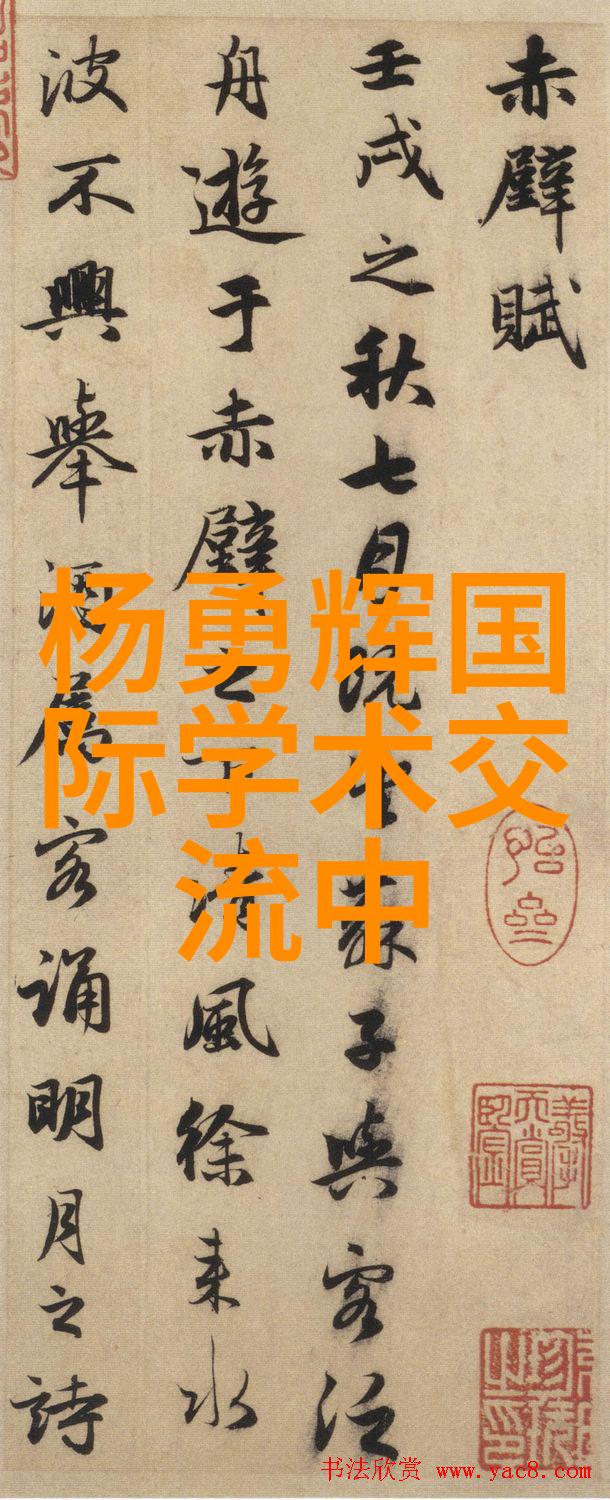 赤壁賦
壬戌之秋七月既望蘇子與客泛
舟遊于赤壁之下清風徐来水
波不興舉酒属客誦明月之詩
杨勇辉国
际学术交
流中
书法欣赏 www.yac8.com